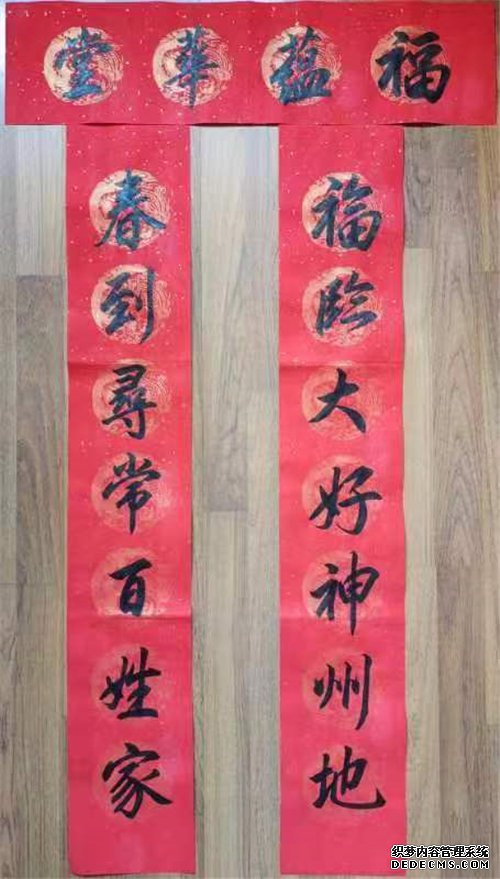 福蕴華堂
福临大好神州地
春到尋常百姓家
织梦内容管理系统
DEDECMS.COM